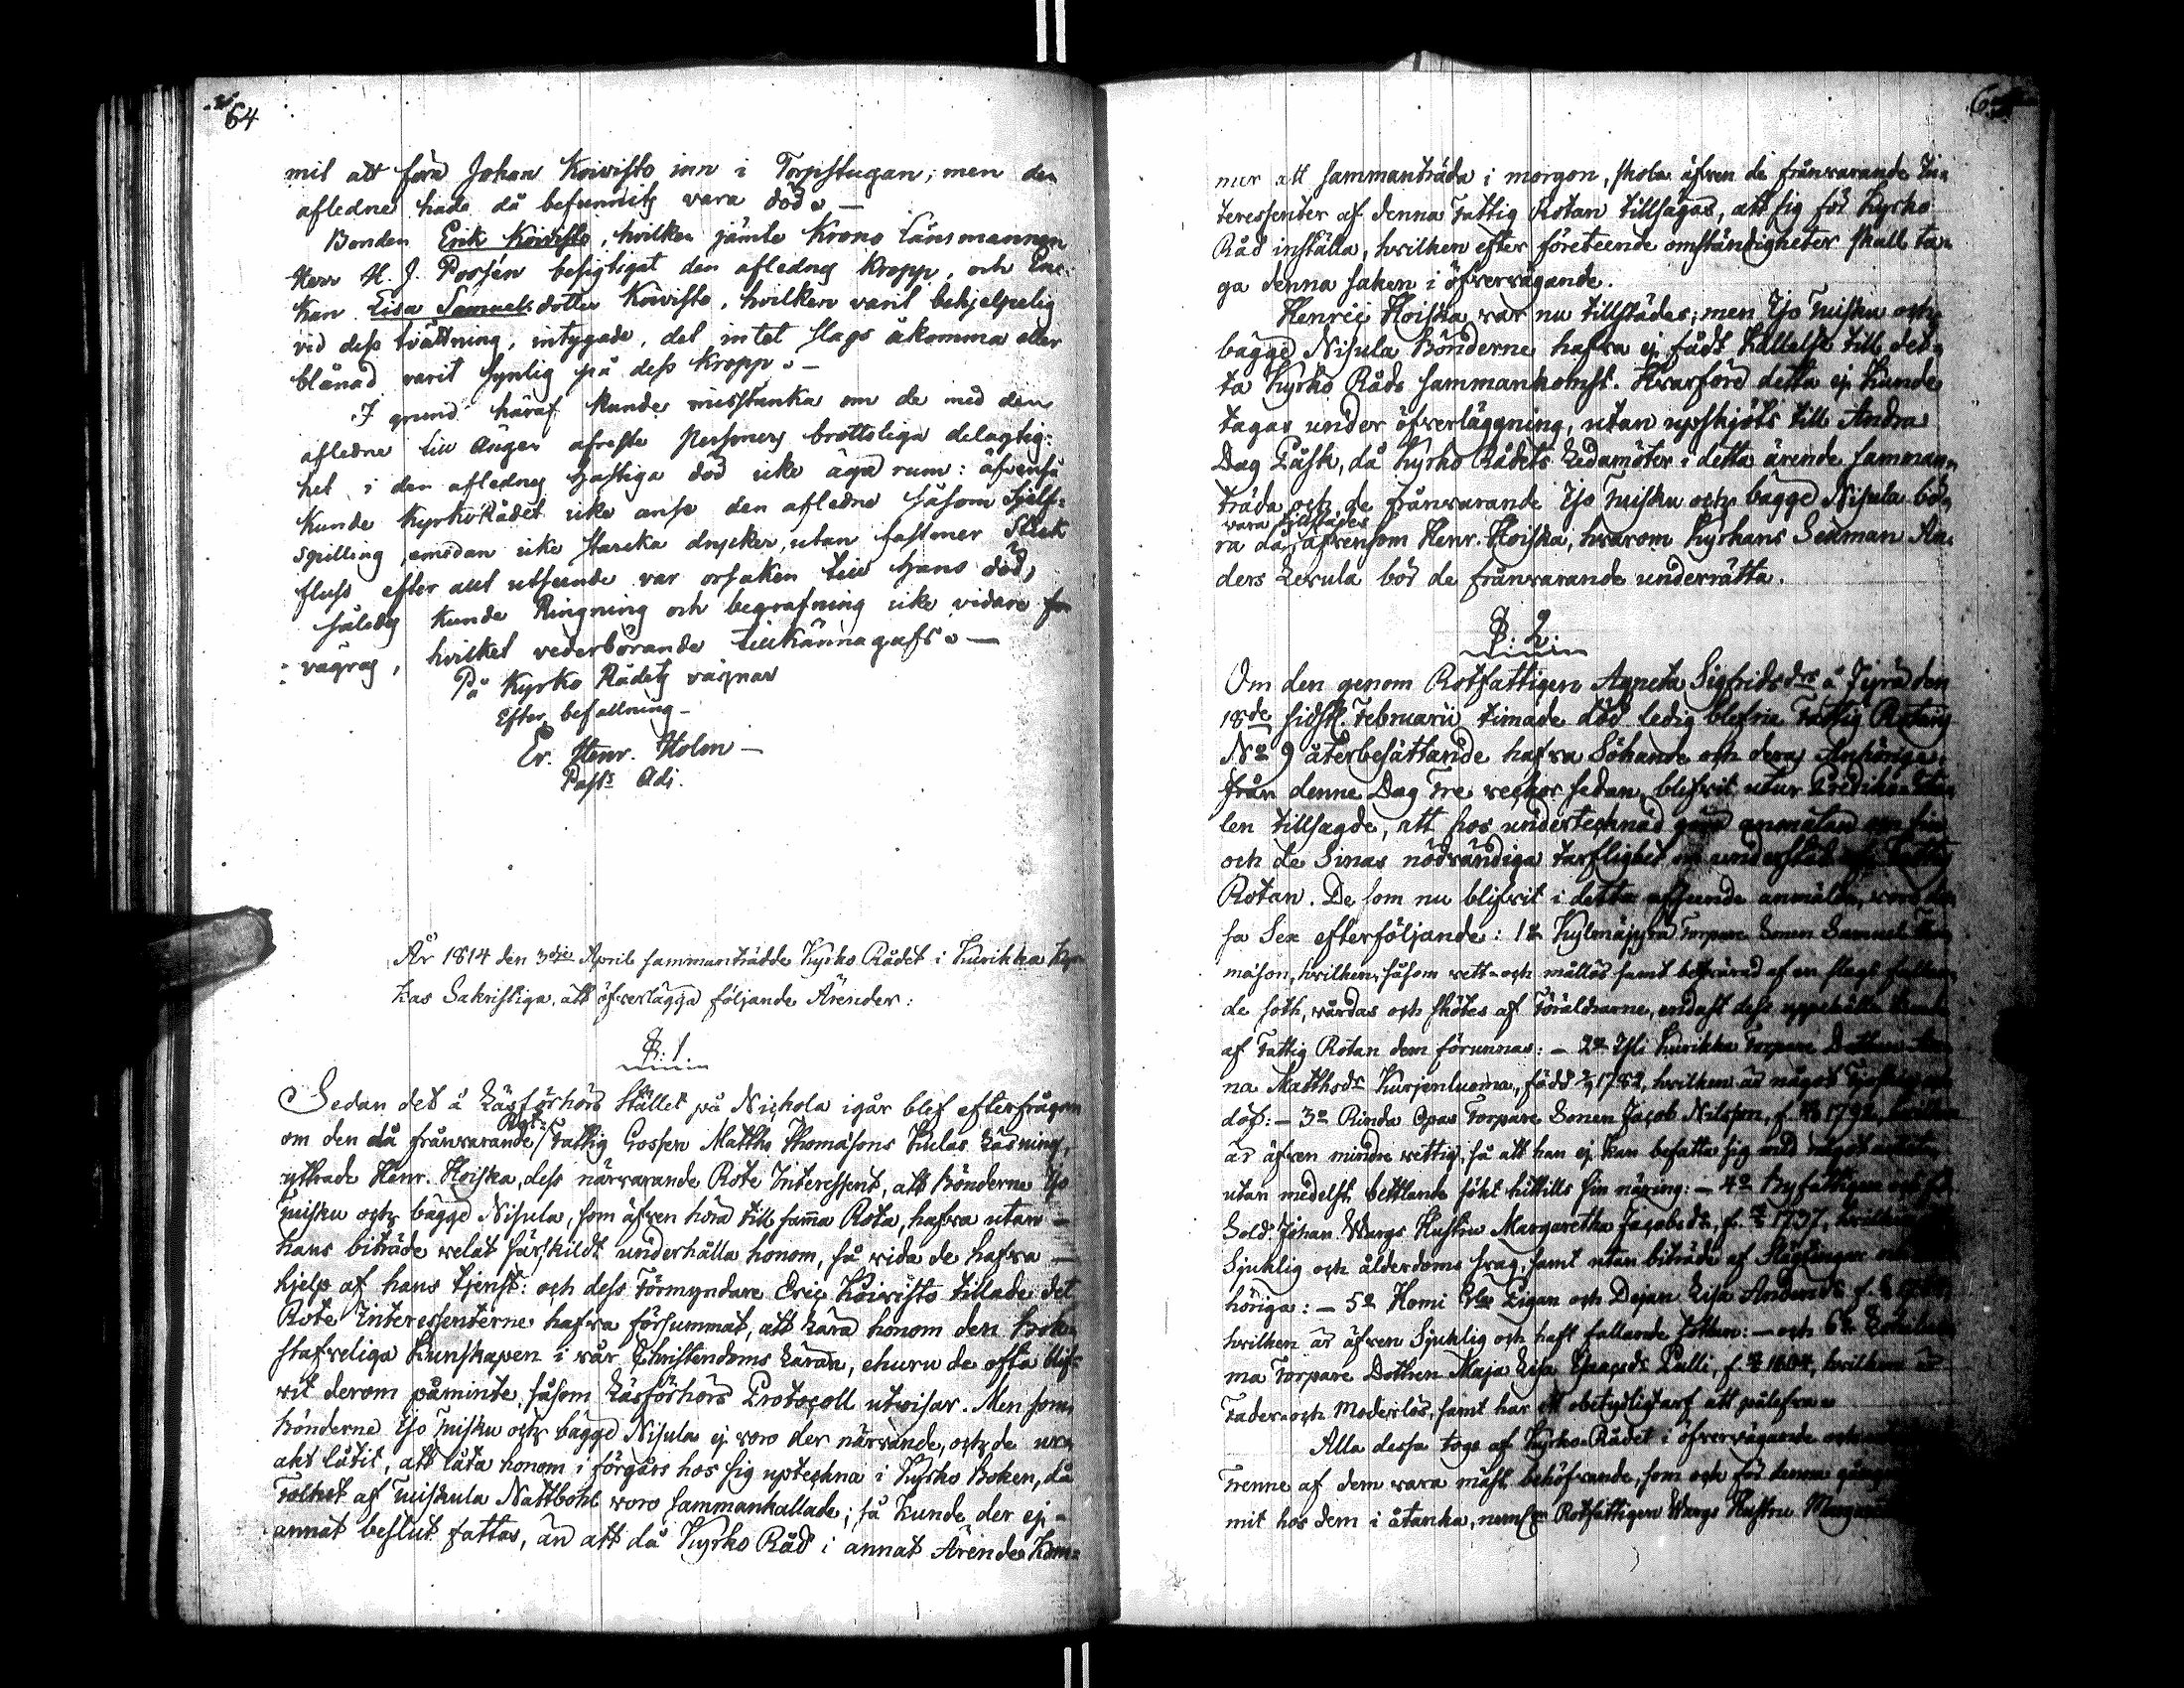 64
mit att föra Johan Koivisto inn i Torpstugan; men den
afledne hade då befunnits vara död. —
Bonden Erik Koivisto, hvilken jämte Krono Länsmannen
Herr H. J. Possén besigtigat den aflednes kropp, och Enc-
kan Lisa Samuelsdotter Koivisto, hvilken varit behjelpelig
vid dess tvättning, intygade, det intet slags åkomma eller
blånad varit synlig på dess kropp. —
I grund häraf kunde misstanka om de med den
afledne till ängen afreste Personers brottsliga delagtig-
het i den aflednes hastiga död icke äga rum: äfvenså
kunde KyrkoRådet icke anse den afledne såsom Sjelf-
spilling, emedan icke starcka drycker, utan fastmer Slick
fluss efter allt utseende var orsaken till hans död;
således kunde Ringning och begrafning icke vidare för
vägras, hvilket vederbörande tillkännagafs. —
På Kyrko Rådets vägnar
Efter befallning —
Er. Henr. Holm —
Past: Adj.
År 1814 den 3dje April sammanträdde Kyrko Rådet i Kurikka Kyr-
kas Sakristiga, att öfverlägga följande Ärender:
§. 1.
Sedan det å Läsförhörs stället på Nichola igår blef efterfrågan
om den då frånvarande Rot= Fattig Gossen Matths Thomasons Kulas Läsning,
yttrade Henr. Hoiska, dess närvarande Rote Interessent, att Bönderne Yo
Tuisku och bägge Nisula, som äfven höra till sam̄a Rota, hafva utan —
hans biträde velat särskildt underhålla honom, så vida de hafva —
hjelp af hans tjenst: och dess Förmyndare Eric Koivisto tillade det
Rote Interessenterne hafva försummat, att lära honom den Bok-
stafveliga Kunskapen i vår Christendoms Läran, ehuru de ofta blif-
vit derom påminte, såsom Läsförhörs Protocoll utvisar. Men som
Bönderne Yo Tuisku och bägge Nisula ej voro der närvande, och de ur-
akt låtit, att låta honom i förgårs hos sig uptechna i Kyrko Boken, då
Folket af Tuiskula Nattbohl voro sammankallade; så kunde der ej —
annat beslut fattas, än att då Kyrko Råd i annat Ärende kom-
mer att sammanträda i morgon, skola äfven de frånvarande In-
teressenter af denna Fattig Rotan tillsägas, att sig för Kyrko
Råd inställa, hvilken efter företeende omständigheter skall ta-
ga denna saken i öfvervägande.
Henric Hoiska var nu tillstädes; men Yo Tuisku och
bägge Nisula Bönderne hafva ej fådt kallelse till det-
ta Kyrko Råds sammankomst. Hvarföre detta ej kunde
tagas under öfverläggning, utan upskjöts till Andra
Dag Påsk, då Kyrko Rådets Ledamöter i detta ärende samman-
träda och de frånvarande Yo Tuisku och bägge Nisula bö-
ra då vara tillstädes äfvensom Henr. Hoiska, hvarom Kyrkans Sexman An-
ders Levula bör de frånvarande underrätta.
§. 2.
Om den genom Rotfattigen Agneta Sigfridsdrs å Jyrä den
18de sidstl. Februarii timade död ledig blefne Fattig Rotans
No 9 återbesättande hafva Sökande och deras Anhöriga,
från denne Dag Tre veckor sedan, blifvit utur Predikosto-
len tillsagde, att hos undertecknad göra anmälan om sin
och de Sinas nödvändiga tarflighet om understöd
Rotan. De som nu blifvit i detta afseende anmälde, voro des-
sa Sex efterföljande: 1o Kylmäjyrä Torpare Sonen Samuel
måson, hvilken, såsom vett- och mållös samt besvärad af en slags fallan-
de soth, vårdas och skötes af Föräldrarne, endast dess uppehälle
af Fattig Rotan dem förunnas: — 2o Yli Kurikka Torpare Dottren An-
na Matthsdr Kurjenluoma, född 1782, hvilken är något
döf: — 3o Rinda Opas Torpare Sonen Jacob Nilsson, f. 1792, hvilken
är äfven mindre vettig, så att han ej kan befatta sig med något
utan medelst bettlande sökt hittills sin näring: — 4o Byfattigen
Sold. Johan Wargs Hustru Margaretha Jacobsdr, f. 1737, hvilken
Sjuklig och ålderdoms svag, samt utan biträde af Slägtingar och
höriga: — 5o Komi Pigan och Dejan Lisa Andersdr f.
hvilken är äfven Sjuklig och haft fallande sothen: — och 6o
ma Torpare Dottren Maja Lisa Pulli, f. 1804, hvilken är
Fader- och Moderlös, samt har ett obetydligt arf att pålefva.
Alla dessa togs af Kyrko Rådet i öfvervägande och
Trenne af dem vara mäst behöfvande, som och för denna gången
mit hos dem i åtanka, neml. Rotfattigen Wargs Hustru